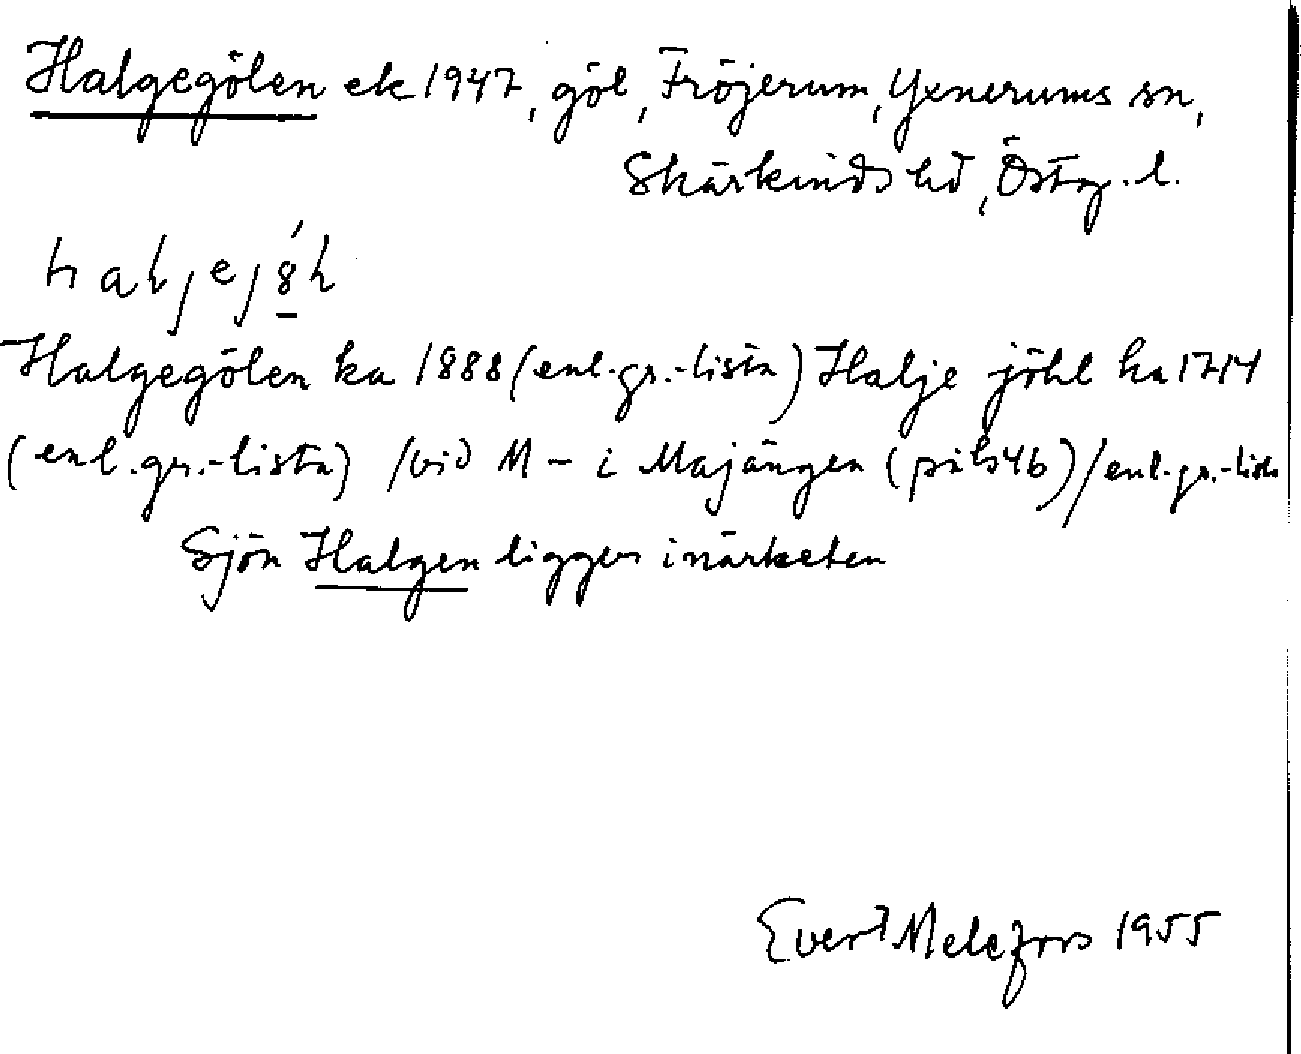 Halgegölen ek 1947, göl, Fröjerum, Yxnerums sn,
Skärkinds hd, Östg. l.
Halgegölen ka 1888 (enl. gr.-lista) Halje jöhl ka 1714
(enl. gr.-lista) /vid M – i Majängen (på 46)/ enl. gr.-lista
Sjön Halgen ligger i närheten
Evert Melefors 1955